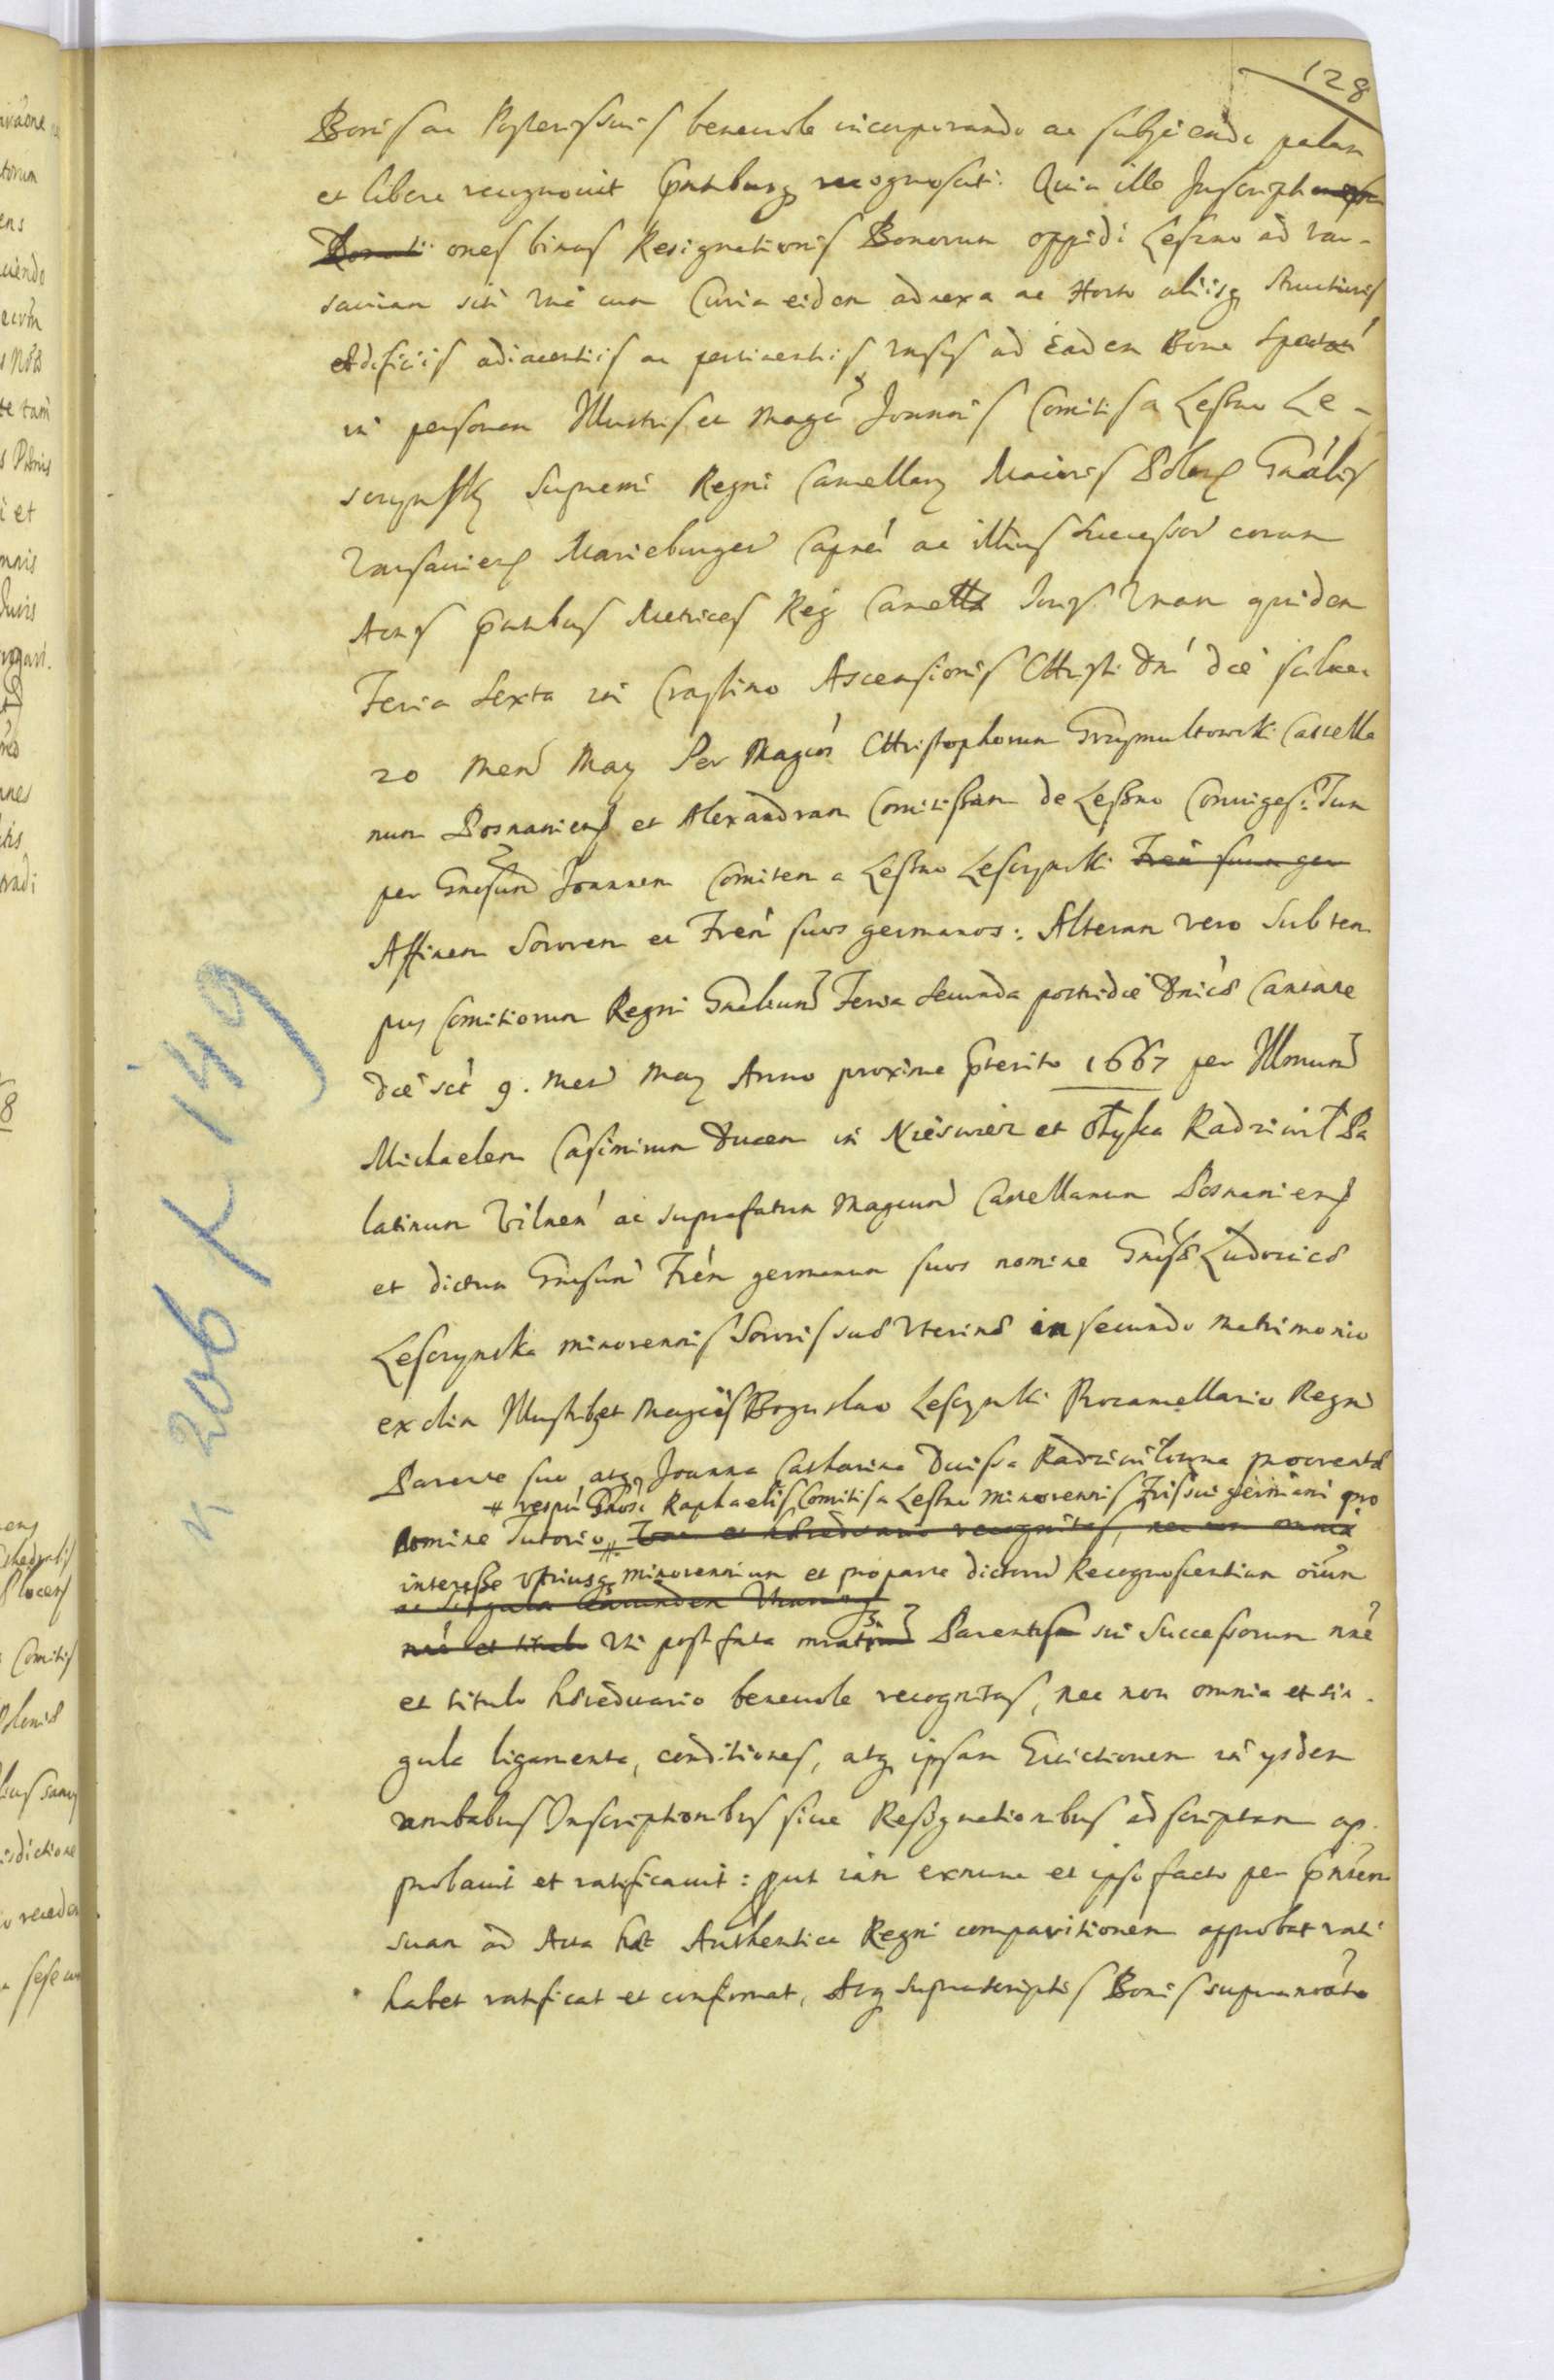 128
Bonis ac Posteris suis beneuole incorporando ac subijciendo palam
et libere recognouit Pntibusq recognoscit. Quia ille Inscripti
ones binas Resignationis Bonorum oppidi Leszno ad Var-
sauiam siti vná cum Curia eidem adnexa ac Horto aliisq structuris
Ædificiis adiacentiis ac pertinentiis vnsis ad eadem Bona spectan
in personam Illustris et Magci Joannis Comitis a Leszno Le-
sczynsky Supremi Regni Cancellary Maioris Poloniæ Gnalis
Varsauiens Marieburgen Capnei ac illius Successor coram
Actis Pntibus Metrices Reg Cancellæ Vnam quidem
Feria Sexta in Crastino Ascensionis Christi Dni die scilicet
20 Mens May Per Magcum Christophorum Grzymultowski Castella
num Posnaniens et Alexandram Comitissam de Leszno Coniuges: Tum
per Gnosum Joannem Comitem a Leszno Lesczynski Frem suum ger
Affinem Sororem et Frem suos germanos: Alteram vero sub tem
pus Comitiorum Regni Gnalium Feria Secunda postridie Dnicæ Cantate
die sct 9. Mens May Anno proxime Pterito 1667 per Illmum
Michaelem Casimirum Ducem in Nieswiez et Ołyka Radziwił Pa
latinum Vilnen ac suprafatum Magcum Castellanum Posnaniens
et dictum Gnosum Frem germanum suos nomine Gnosæ Ludouicæ
Lesczynska minorennis Sororis suæ Vterinæ in secundo Matrimonio
ex olim Illustri et Magco Boguslao Lesczynski Procancellario Regni
Parente suo atq Joanna Catharina Ducissa Radziwiłowna procreatæ
# respu Gnosi Raphaelis Comitis a Leszno Minorennis Fris sui germani pro
nomine Tutorio # Iure et hæreditario recognitas, nec non omnia
interesse vtriusq minorennium et pro parte dictorum Recognoscentium oium
ac singula
nre et titulo Vti post fata Parentis sui Successorum nne
et titulo hæreditario beneuole recognitas, nec non omnia et sin-
gula ligamenta, conditiones, atq ipsam Euictionem in ysdem
ambabus Inscriptionibus siue Resignationibus adscriptam ap-
probauit et ratificauit: put iam exnunc et ipso facto per Pntem
suam ad Acta hæc Authentica Regni comparitionem approbat rati
habet ratificat et confirmat, Atq suprascriptis Bonis supranoato
n 206 K 149